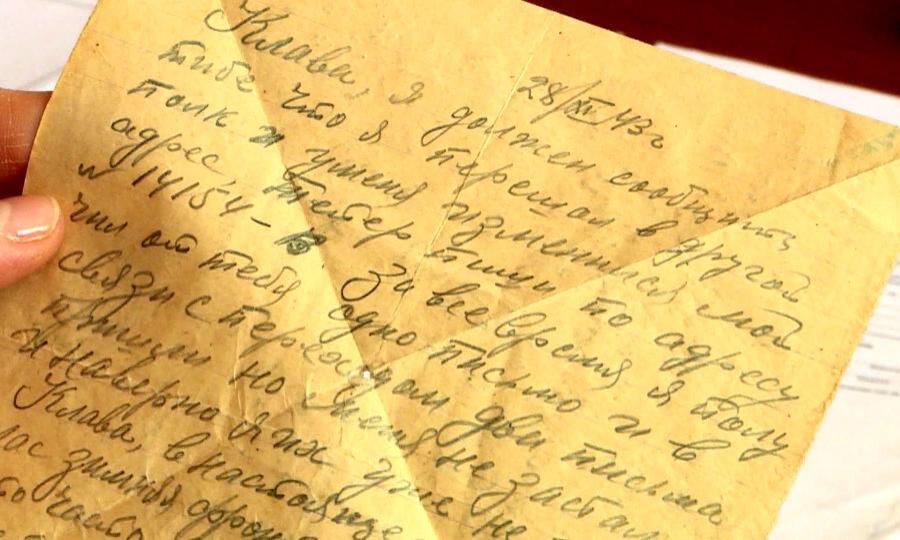 28/XII 43 г
Клава, я должен сообщить
тибе что я перешол в другой
полк и уменя изменился мой
адрес, тепер пиши по адресу
№ 14154-В За все время я полу
чил от тебя одно письмо и в
связи с переходом два письма
пришли но меня не застали
и наверно я их уже не
Клава, в настояще
нас зимняя фрон
часто